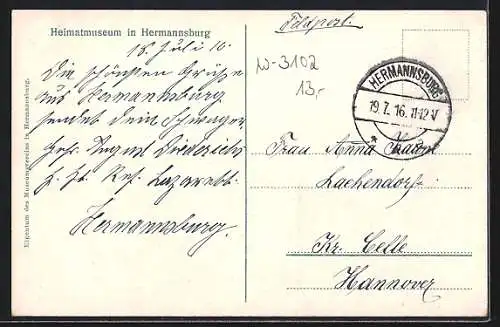 Heimatmuseum in Hermannsburg
18. Juli 16.
Die schönsten Grüße
aus Hermannsburg
sendet dein Schwager
Gefr. August Diederichs
z. Zt. Res. Lazarett
Hermannsburg.
Eigentum des Museumsvereins in Hermannsburg.
Feldpost.
W-3102
13,-
HERMANNSBURG
19.7.16. 11-12 V
*
Frau Anna
Lachendorf
Kr. Celle
Hannover